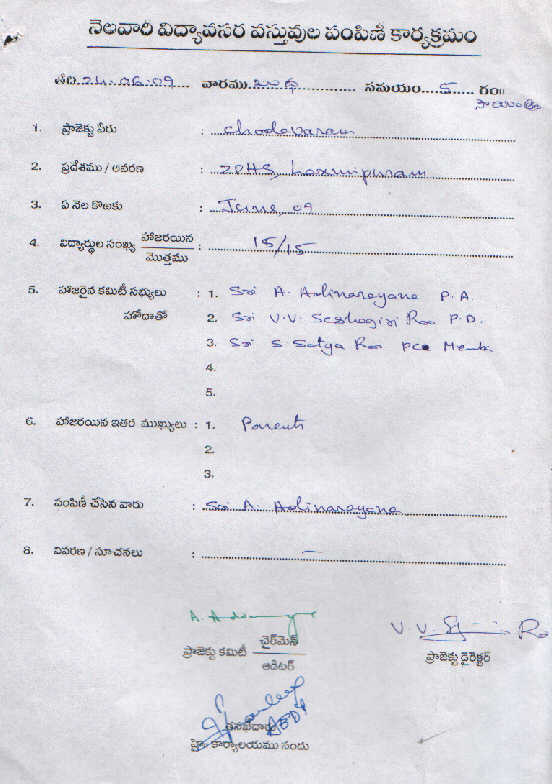 నెలవారి విద్యావసర వస్తువుల పంపిణీ కార్యక్రమం
తేది 24.06.09 వారము బుధ సమయం 5 గం॥
సాయంత్రం
1. ప్రాజెక్టు పేరు : Chodavaram
2. ప్రదేశము / ఆవరణ : 2045, Laxmipuram
3. ఏ నెల కొఱకు : June, 09
4. విద్యార్థుల సంఖ్య హాజరయిన / మొత్తము : 15/15
5. హాజరైన కమిటీ సభ్యులు : 1. Sri A. Adinarayana P.A.
హోదాతో 2. Sri V.V. Seshagiri Rao P.D.
3. Sri S Satya Rao PCO Memb
4.
5.
6. హాజరయిన ఇతర ముఖ్యులు : 1. Parents
2.
3.
7. పంపిణీ చేసిన వారు : Sri A Adinarayana
8. వివరణ / సూచనలు : —
ప్రాజెక్టు కమిటీ ఛైర్‌మెన్ / ఆడిటర్
V. V. Rao
ప్రాజెక్టు డైరెక్టర్
హై. కార్యాలయము నందు